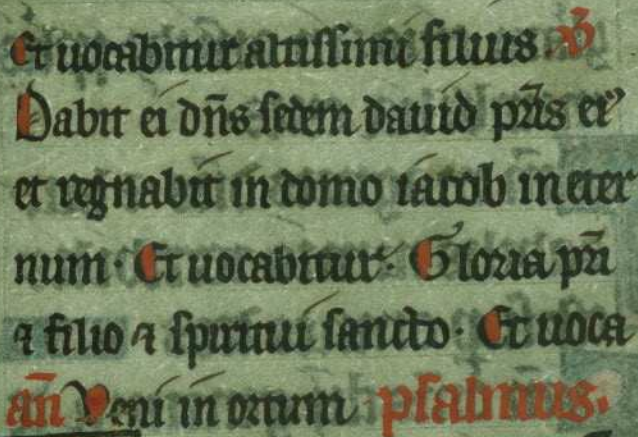 Et uocabitur altissimi filius. V̄
Dabit ei dn̄s sedem dauid pr̄is eiꝰ
et regnabit in domo iacob in eter
num· Et uocabitur· Gloria pr̄i
⁊ filio ⁊ spiritui sancto· Et uoca
an̄ Veni in ortum psalmus.